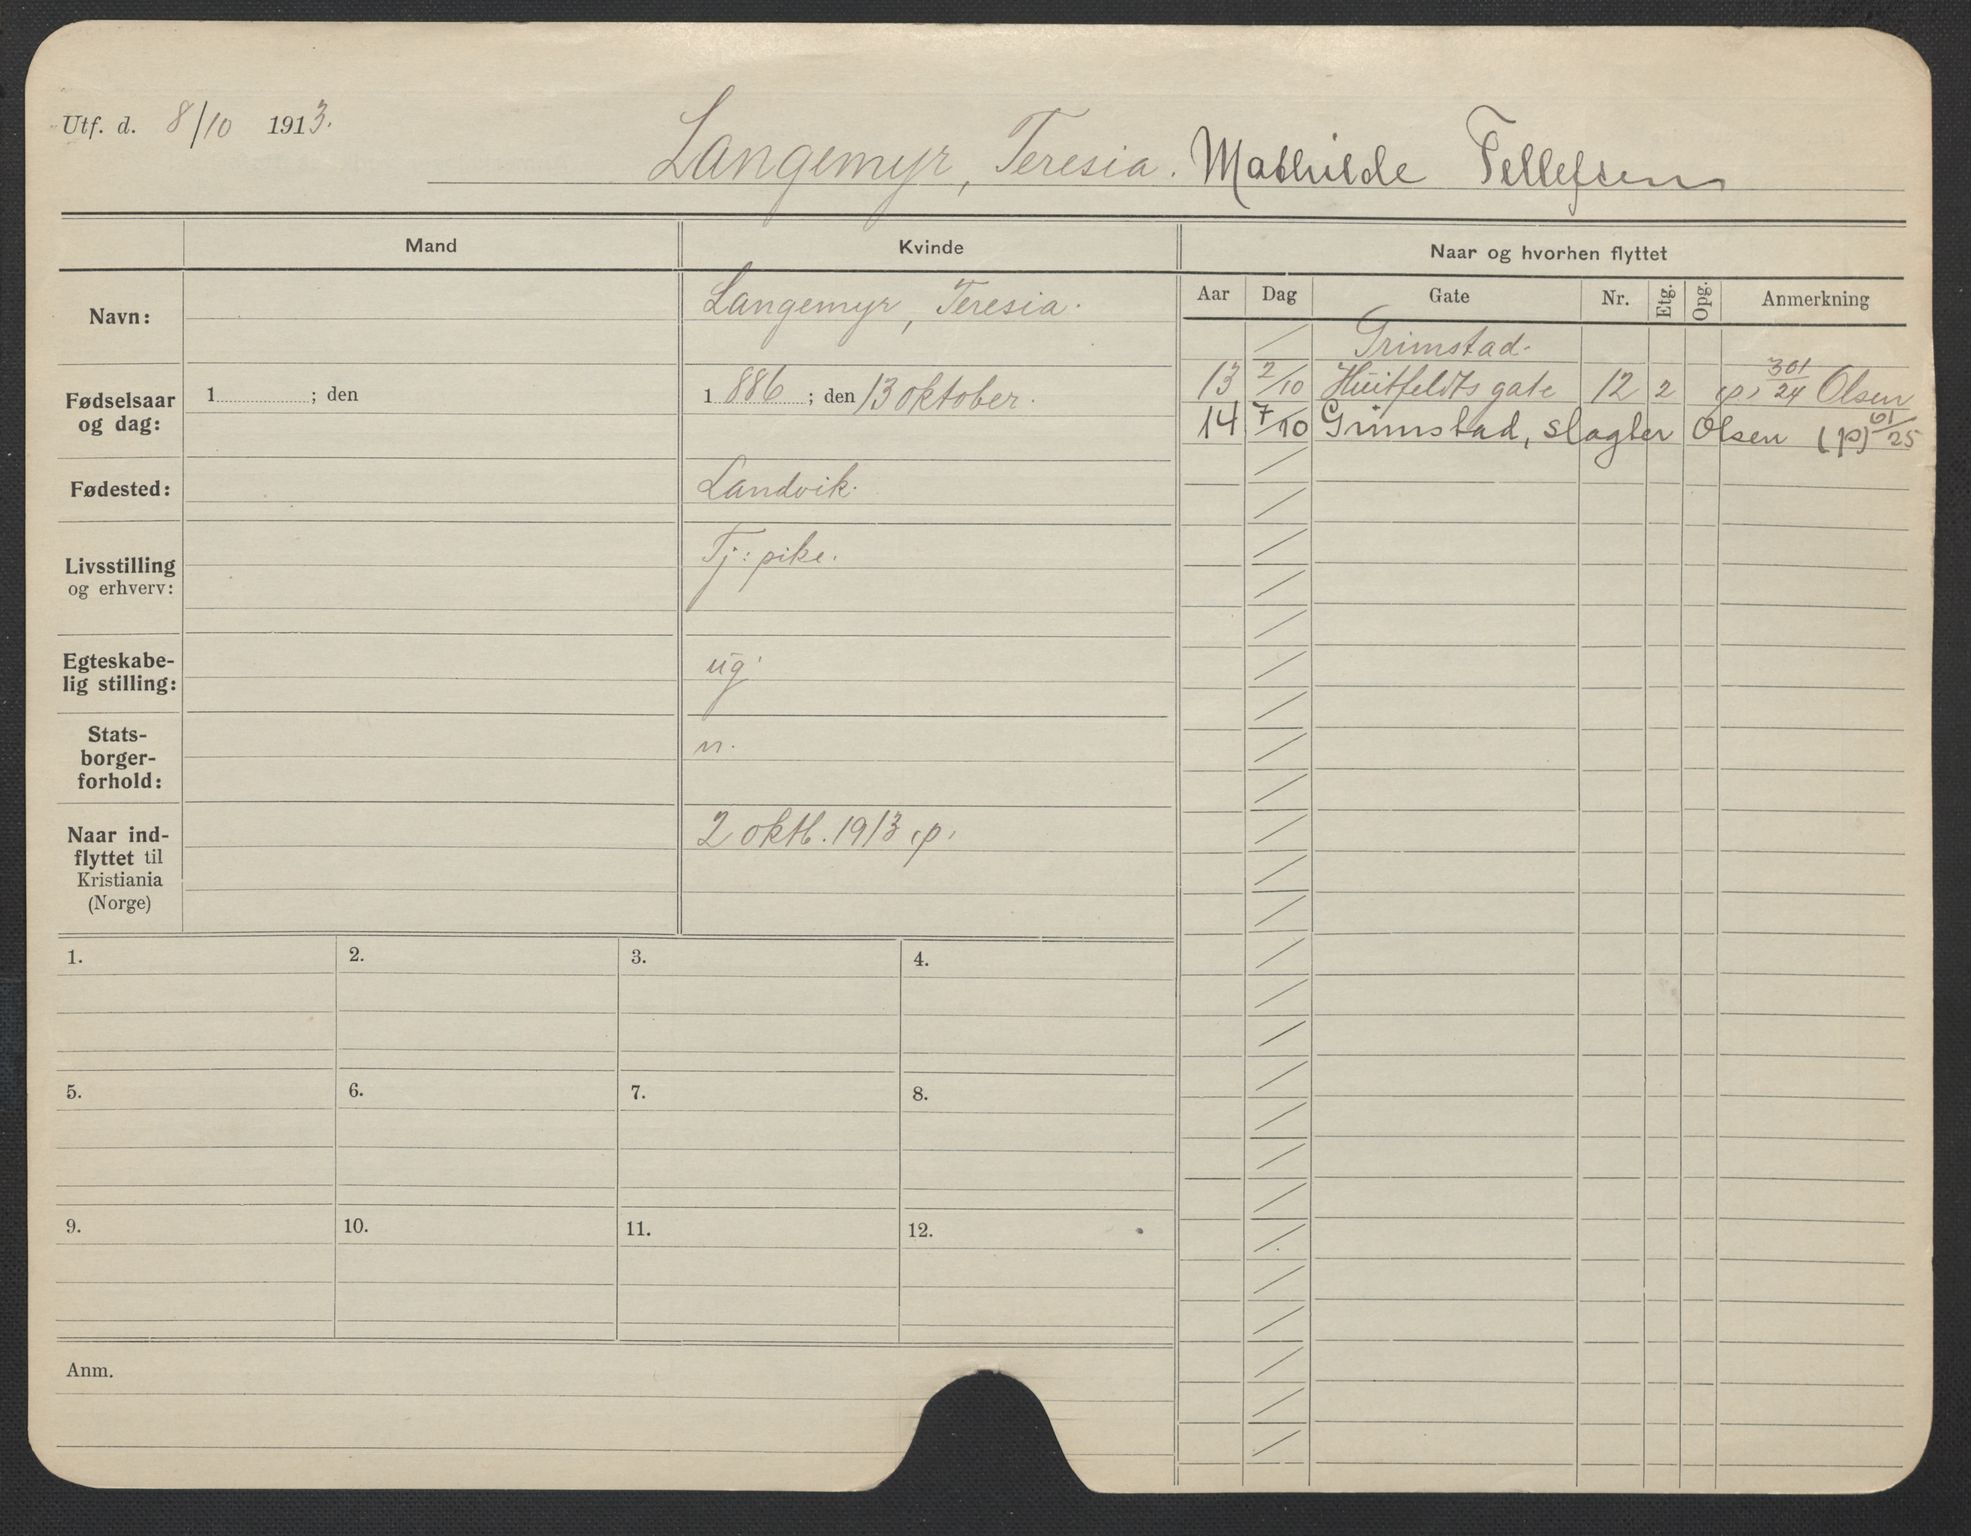 Utf. d. 8/10 1913.
Langemyr, Teresia. Mathilde Tellefsen
Mand
Kvinde
Naar og hvorhen flyttet
Navn:
Langemyr, Teresia.
Fødselsaar og dag:
1 ; den
1886 ; den 13 oktober.
Fødested:
Landvik.
Livsstilling og erhverv:
Tj: pike.
Egteskabe-
lig stilling:
ug.
Stats-
borger-
forhold:
n.
Naar ind-
flyttet til
Kristiania
(Norge)
2 oktb. 1913 (p)
Aar Dag Gate Nr. Etg. Opg. Anmerkning
Grimstad.
13 2/10 Huitfeldts gate 12 2 (p) 301/24 Olsen
14 7/10 Grimstad, slagter Olsen (p) 61/25
1. 2. 3. 4.
5. 6. 7. 8.
9. 10. 11. 12.
Anm.